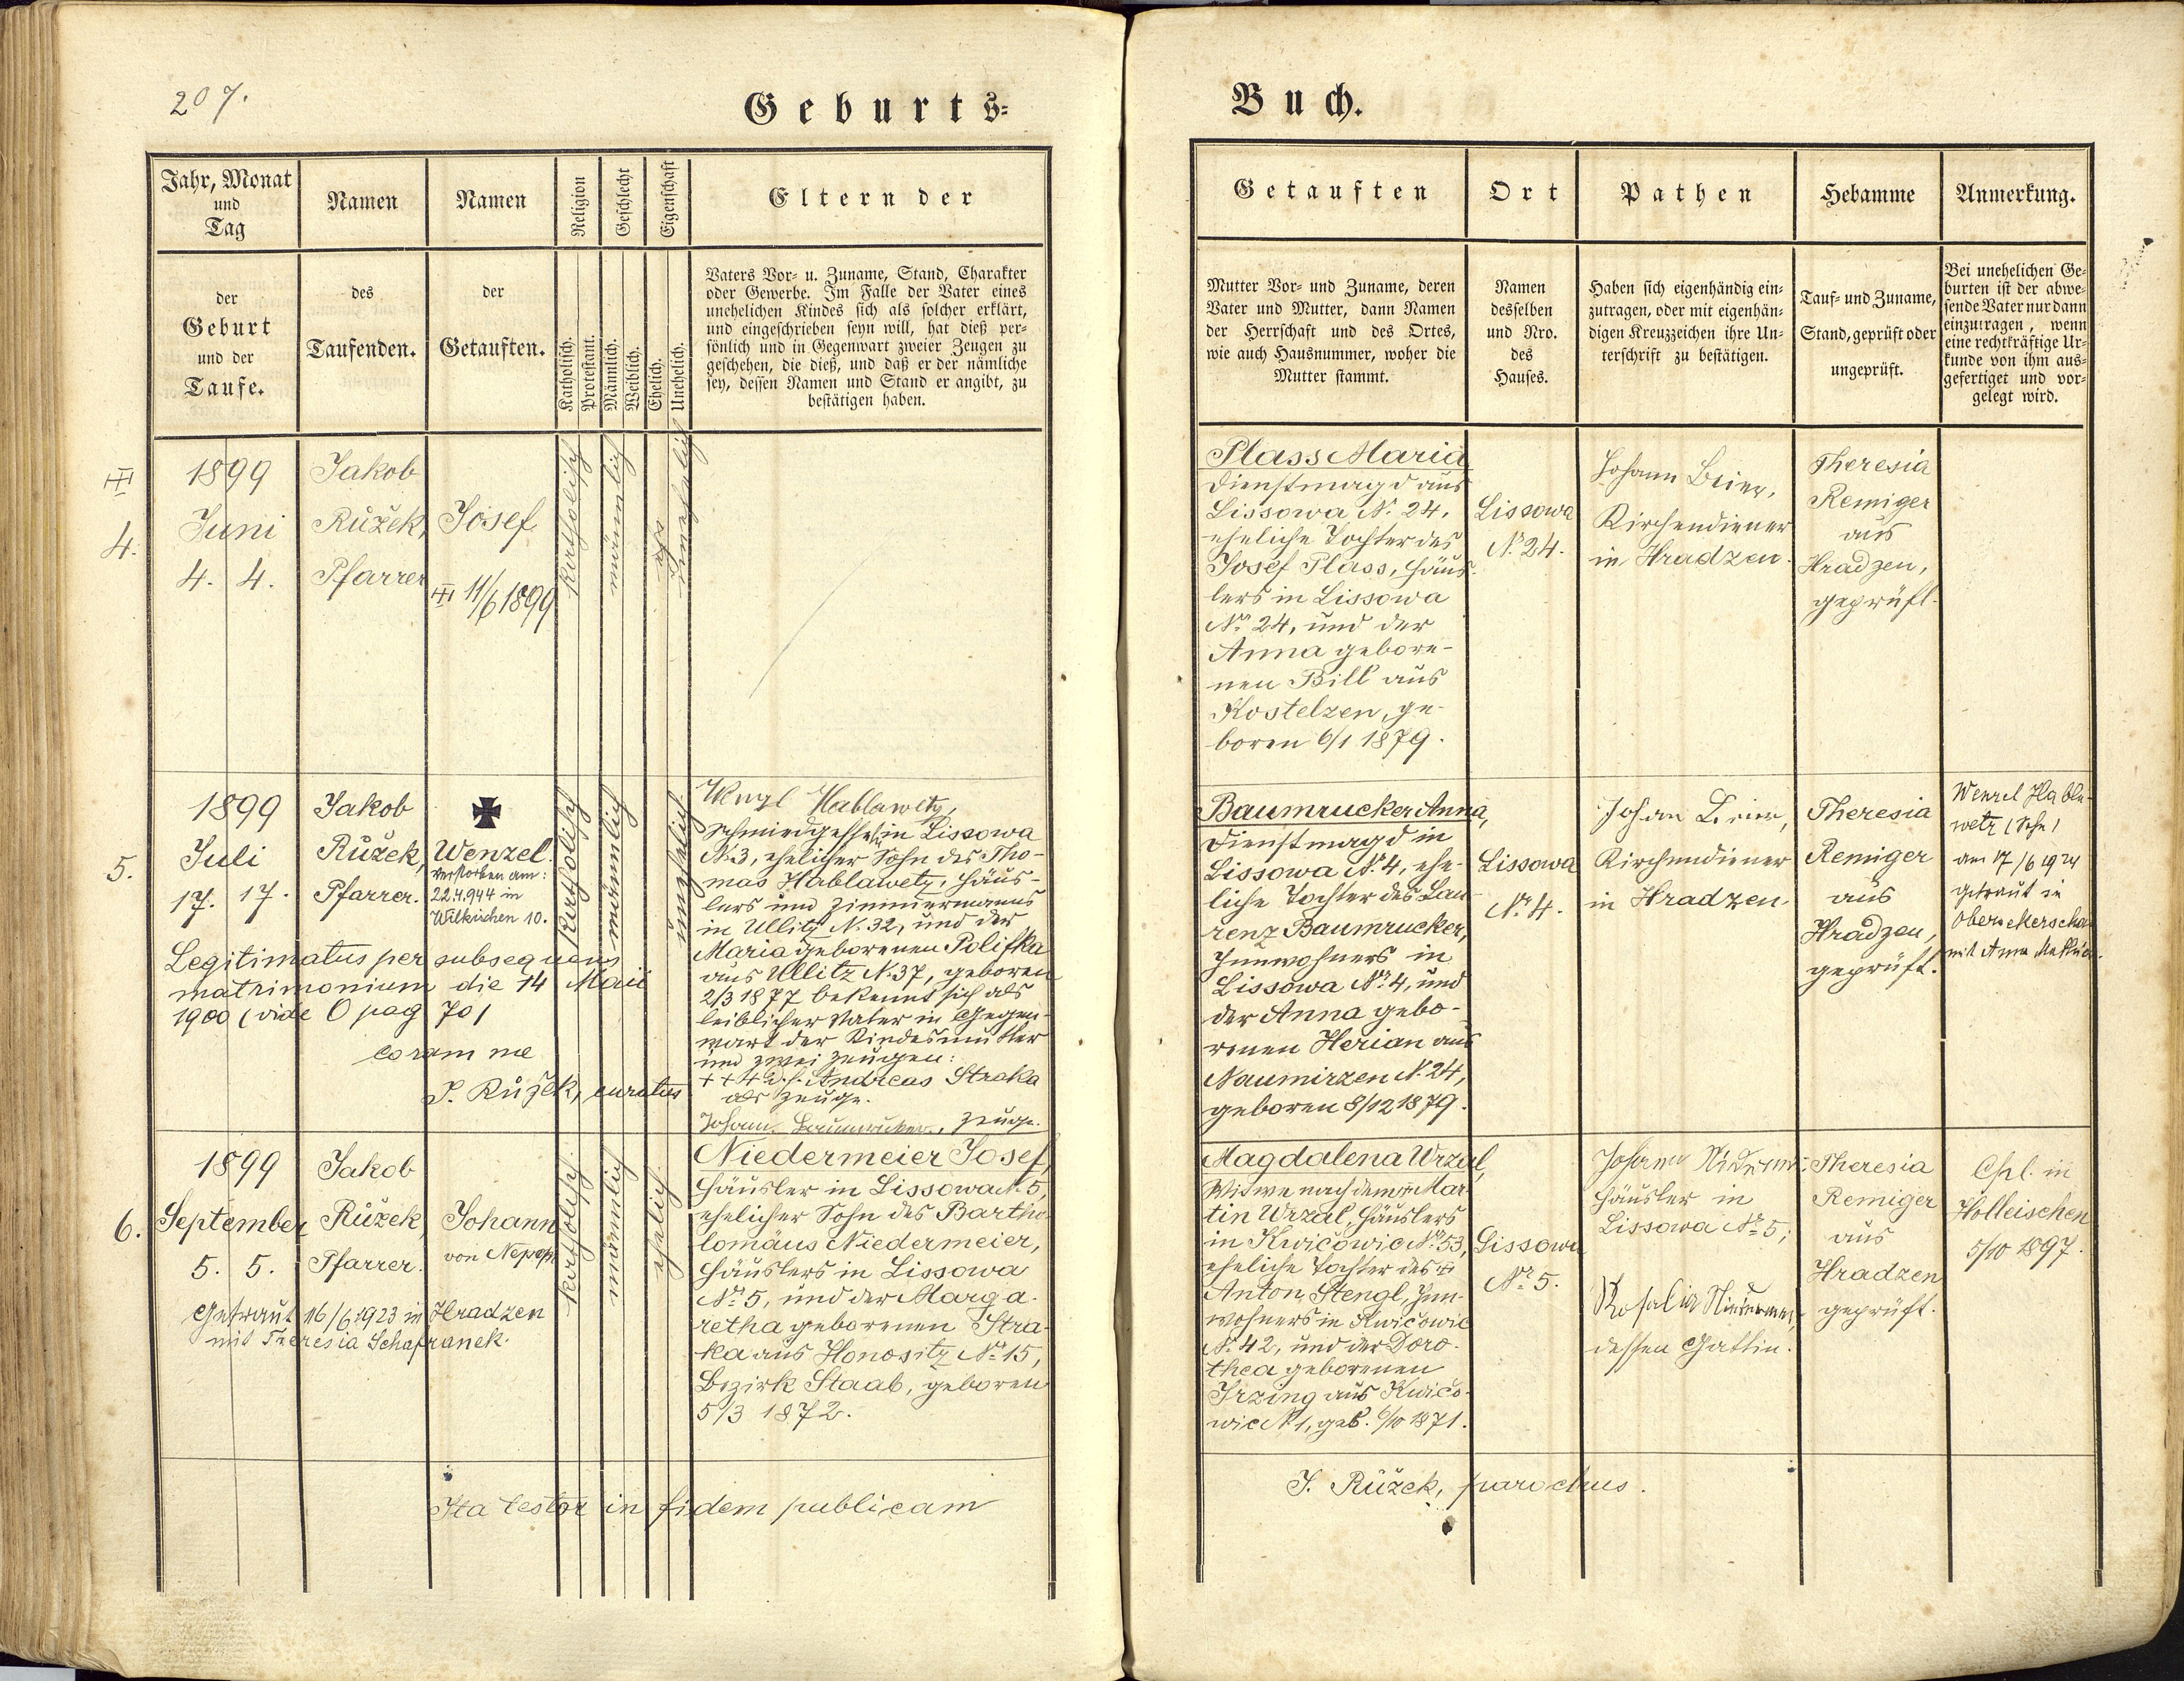 207.
Geburts-
Jahr, Monat
und
Tag
Namen
Namen
Religion
Geschlecht
Eigenschaft
Eltern der
der
Geburt
und der
Taufe.
des
Taufenden.
der
Getauften.
Katholisch.
Protestant.
Männlich.
Weiblich.
Ehelich.
Unehelich.
Vaters Vor- u. Zuname, Stand, Charakter
oder Gewerbe. Im Falle der Vater eines
unehelichen Kindes sich als solcher erklärt,
und eingeschrieben seyn will, hat dieß per-
sönlich und in Gegenwart zweier Zeugen zu
geschehen, die dieß, und daß er der nämliche
sey, dessen Namen und Stand er angibt, zu
bestätigen haben.
4.
1899
Juni
4. 4.
Jakob
Růžek,
Pfarrer
Josef
11/6 1899
katholisch
männlich
unehelich
5.
1899
Juli
17. 17.
Jakob
Růžek,
Pfarrer.
Wenzel.
verstorben am:
22.4.944 in
Wilkischen 10.
katholisch
männlich
unehelich
Legitimatus per subsequens
matrimonium die 14 Maii
1900 (vide O pag 70)
coram me
J. Růžek, curatus
Wenzl Hablawetz,
Schmiedgeselle in Lissowa
N. 3, ehelicher Sohn des Tho-
mas Hablawetz, Häus-
lers und Zimmermanns
in Ullitz N. 32, und der
Maria geborenen Polifka
aus Ullitz N. 37, geboren
2/3 1877 bekennt sich als
leiblicher Vater in Gegen-
wart der Kindesmutter
und zwei Zeugen:
Andreas Straka
als Zeuge.
Johann Baumrucker, Zeuge.
6.
1899
September
5. 5.
Jakob
Růžek,
Pfarrer.
Johann
von Nepom
katholisch
männlich
ehelich
Getraut 16/6 1923 in Hradzen
mit Theresia Schafranek.
Niedermeier Josef,
Häusler in Lissowa N. 5,
ehelicher Sohn des Bartho-
lomäus Niedermeier,
Häuslers in Lissowa
Nº 5, und der Marga-
retha geborenen Stra-
ka aus Honositz Nº 15,
Bezirk Staab, geboren
5/3 1872.
Ita testor in fidem publicam
Buch.
Getauften
Ort
Pathen
Hebamme
Anmerkung.
Mutter Vor- und Zuname, deren
Vater und Mutter, dann Namen
der Herrschaft und des Ortes,
wie auch Hausnummer, woher die
Mutter stammt.
Namen
desselben
und Nro.
des
Hauses.
Haben sich eigenhändig ein-
zutragen, oder mit eigenhän-
digen Kreuzzeichen ihre Un-
terschrift zu bestätigen.
Tauf- und Zuname,
Stand, geprüft oder
ungeprüft.
Bei unehelichen Ge-
burten ist der abwe-
sende Vater nur dann
einzutragen, wenn
eine rechtkräftige Ur-
kunde von ihm aus-
gefertiget und vor-
gelegt wird.
Plass Maria
Dienstmagd aus
Lissowa N. 24,
eheliche Tochter des
Josef Plass, Häus-
lers in Lissowa
Nº 24, und der
Anna gebore-
nen Bill aus
Kostelzen, ge-
boren 6/1 1879.
Lissowa
N. 24.
Johann Beier,
Kirchendiener
in Hradzen.
Theresia
Remiger
aus
Hradzen,
geprüft.
Baumrucker Anna,
Dienstmagd in
Lissowa Nº 4, ehe-
liche Tochter des Lau-
renz Baumrucker,
Innwohners in
Lissowa Nº 4, und
der Anna gebo-
renen Herian aus
Naumirzen N. 24,
geboren 8/12 1879.
Lissowa
Nº 4.
Johan Beier,
Kirchendiener
in Hradzen
Theresia
Remiger
aus
Hradzen,
geprüft.
Wenzel Habla-
wetz (Sohn)
am 17/6 1924
getraut in
Obersekerschan
mit Anna
Magdalena Wrzal,
Witwe nach dem Mar-
tin Wrzal, Häuslers
in Kwičowic Nº 53,
eheliche Tochter des
Anton Stengl, Inn-
wohners in Kwičowic
N. 42, und der Doro-
thea geborenen
Irzing aus Kwičo-
wic N 1, geb. 6/10 1871.
Lissowa
Nº 5.
Johann
Häusler in
Lissowa Nº 5,
Rosalia
dessen Gattin.
Theresia
Remiger
aus
Hradzen
geprüft.
Cpl. in
Holleischen
5/10 1897.
J. Růžek, parochus.